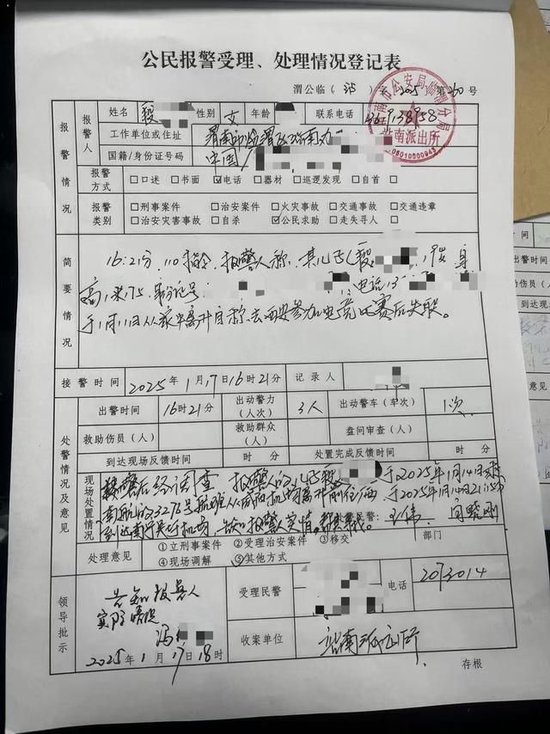 公民报警受理、处理情况登记表
渭公临(沽)2025 第 30 号
报警情况
报警人
姓名 段 性别 女 年龄 联系电话
工作单位或住址 渭南市临渭区站南办
国籍/身份证号码 中国
派出所
报警方式 □口述 □书面 ☑电话 □器材 □巡逻发现 □自首 □
报警类别 □刑事案件 □治安案件 □火灾事故 □交通事故 □交通违章
□治安灾害事故 □自杀 ☑公民求助 □走失寻人 □
简要情况
16:21分,110指令,报警人称,其儿子段 19岁 身
高1米75,身份证号 电话13
于1月11日从家中离开自称去西安参加电竞比赛后失联。
接警时间 2025年1月17日16时21分 记录人
处警情况及意见
出警时间 16时21分 出动警力(人次) 3人 出动警车(车次) 1次
救助伤员(人) 救助群众(人) 盘问审查(人)
到达现场反馈时间 处置完成反馈时间
现场处置情况
接警后经调查 报警人的儿子段 于2025年1月14日
南航 3276号航班从咸阳机场离开前往 于2025年1月14日21
到达 机场 告知报警人实情
处理意见 ①立刑事案件 ②受理治安案件 ③移交 部门
④现场调解 ⑤其他方式
领导批示
告知报案人
实际情况
冯
2025年1月17日18时
受理民警 电话 2073014
收案单位 站南派出所
存根